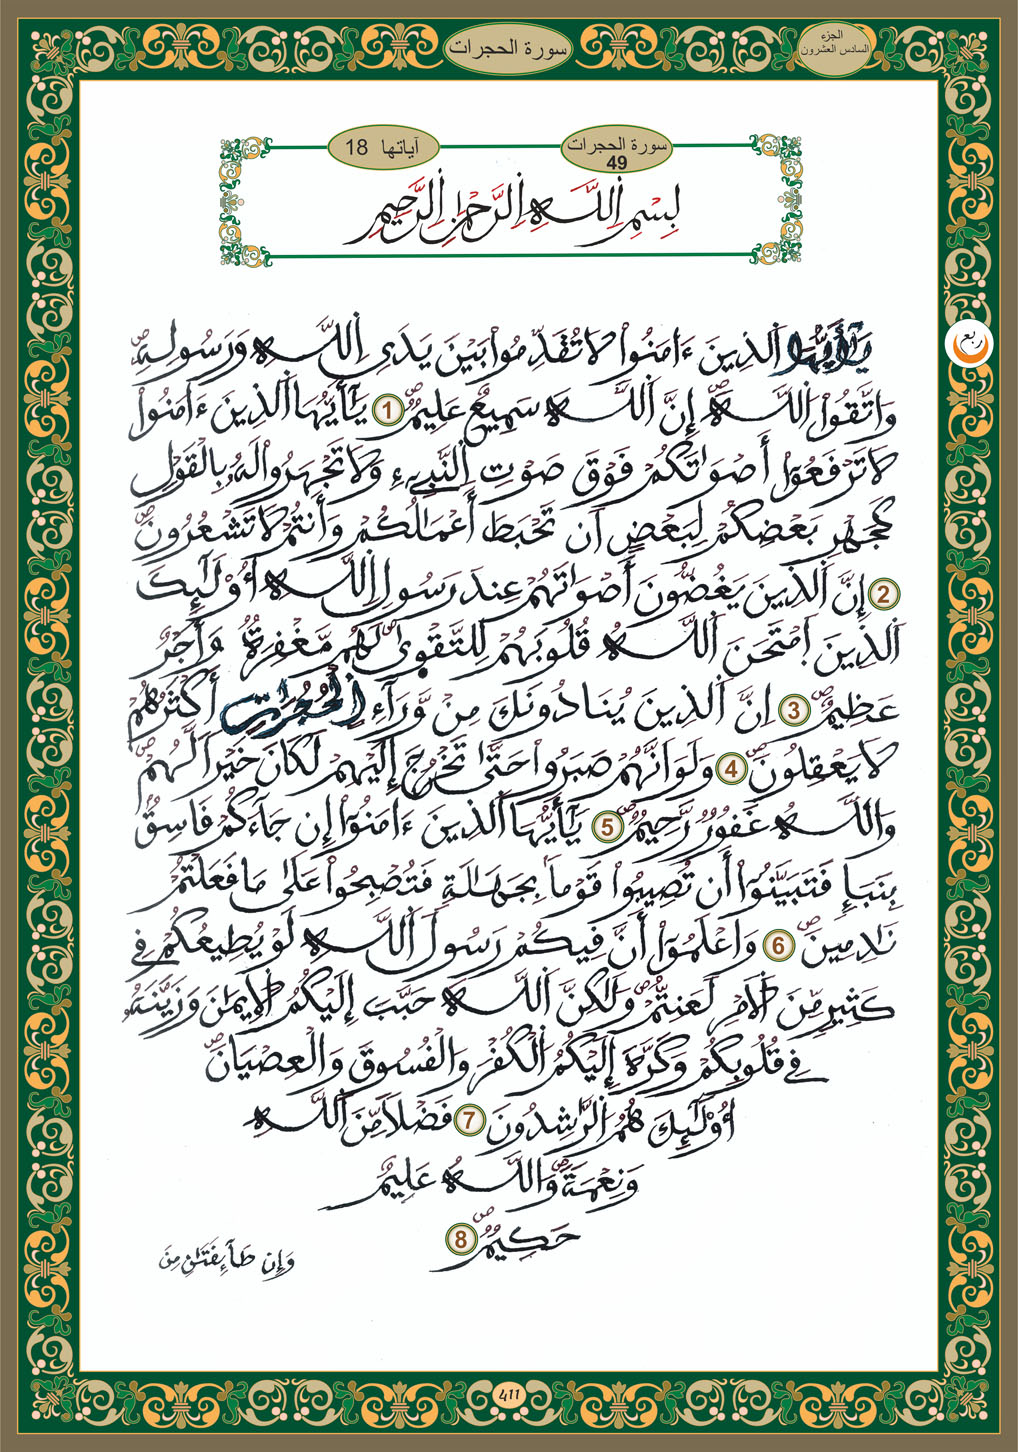 الجزء
السادس العشرون
سورة الحجرات
سورة الحجرات
49
آياتها 18
بِسْمِ اِللَّهِ اِلرَّحْمَٰنِ اِلرَّحِيمِ
ربع
يَٰٓأَيُّهَا اَلذِينَ ءَامَنُواْ لَا تُقَدِّمُواْ بَيْنَ يَدَيِ اِللَّهِ وَرَسُولِهِۦ
وَاتَّقُواْ اُللَّهَ إِنَّ اَللَّهَ سَمِيعٌ عَلِيمٌ 1 يَٰٓأَيُّهَا اَلذِينَ ءَامَنُواْ
لَا تَرْفَعُوٓاْ أَصْوَٰتَكُمْ فَوْقَ صَوْتِ اِلنَّبِيٓءِ وَلَا تَجْهَرُواْ لَهُۥ بِالْقَوْلِ
كَجَهْرِ بَعْضِكُمْ لِبَعْضٍ اَن تَحْبَطَ أَعْمَٰلُكُمْ وَأَنتُمْ لَا تَشْعُرُونَ
2 إِنَّ اَلذِينَ يَغُضُّونَ أَصْوَٰتَهُمْ عِندَ رَسُولِ اِللَّهِ أُوْلَٰٓئِكَ
اَلذِينَ اَمْتَحَنَ اَللَّهُ قُلُوبَهُمْ لِلتَّقْوَىٰ لَهُم مَّغْفِرَةٌ وَأَجْرٌ
عَظِيمٌ 3 اِنَّ اَلذِينَ يُنَادُونَكَ مِنْ وَّرَآءِ اِلْحُجُرَٰتِ أَكْثَرُهُمْ
لَا يَعْقِلُونَ 4 وَلَوَ اَنَّهُمْ صَبَرُواْ حَتَّىٰ تَخْرُجَ إِلَيْهِمْ لَكَانَ خَيْراً لَّهُمْ
وَاللَّهُ غَفُورٌ رَّحِيمٌ 5 يَٰٓأَيُّهَا اَلذِينَ ءَامَنُوٓاْ إِن جَآءَكُمْ فَاسِقُ
بِنَبَإٍ فَتَبَيَّنُوٓاْ أَن تُصِيبُواْ قَوْماَ بِجَهَٰلَةٍ فَتُصْبِحُواْ عَلَىٰ مَا فَعَلْتُمْ
نَٰدِمِينَ 6 وَاعْلَمُوٓاْ أَنَّ فِيكُمْ رَسُولَ اَللَّهِ لَوْ يُطِيعُكُمْ فِي
كَثِيرٍ مِّنَ اَلَامْرِ لَعَنِتُّمْ وَلَٰكِنَّ اَللَّهَ حَبَّبَ إِلَيْكُمُ اُلِايمَٰنَ وَزَيَّنَهُۥ
فِي قُلُوبِكُمْ وَكَرَّهَ إِلَيْكُمُ اُلْكُفْرَ وَالْفُسُوقَ وَالْعِصْيَانَ
أُوْلَٰٓئِكَ هُمُ اُلرَّٰشِدُونَ 7 فَضْلاً مِّنَ اَللَّهِ
وَنِعْمَةً وَاللَّهُ عَلِيمٌ
حَكِيمٌ 8
وَإِن طَآئِفَتَٰنِ مِنَ
411